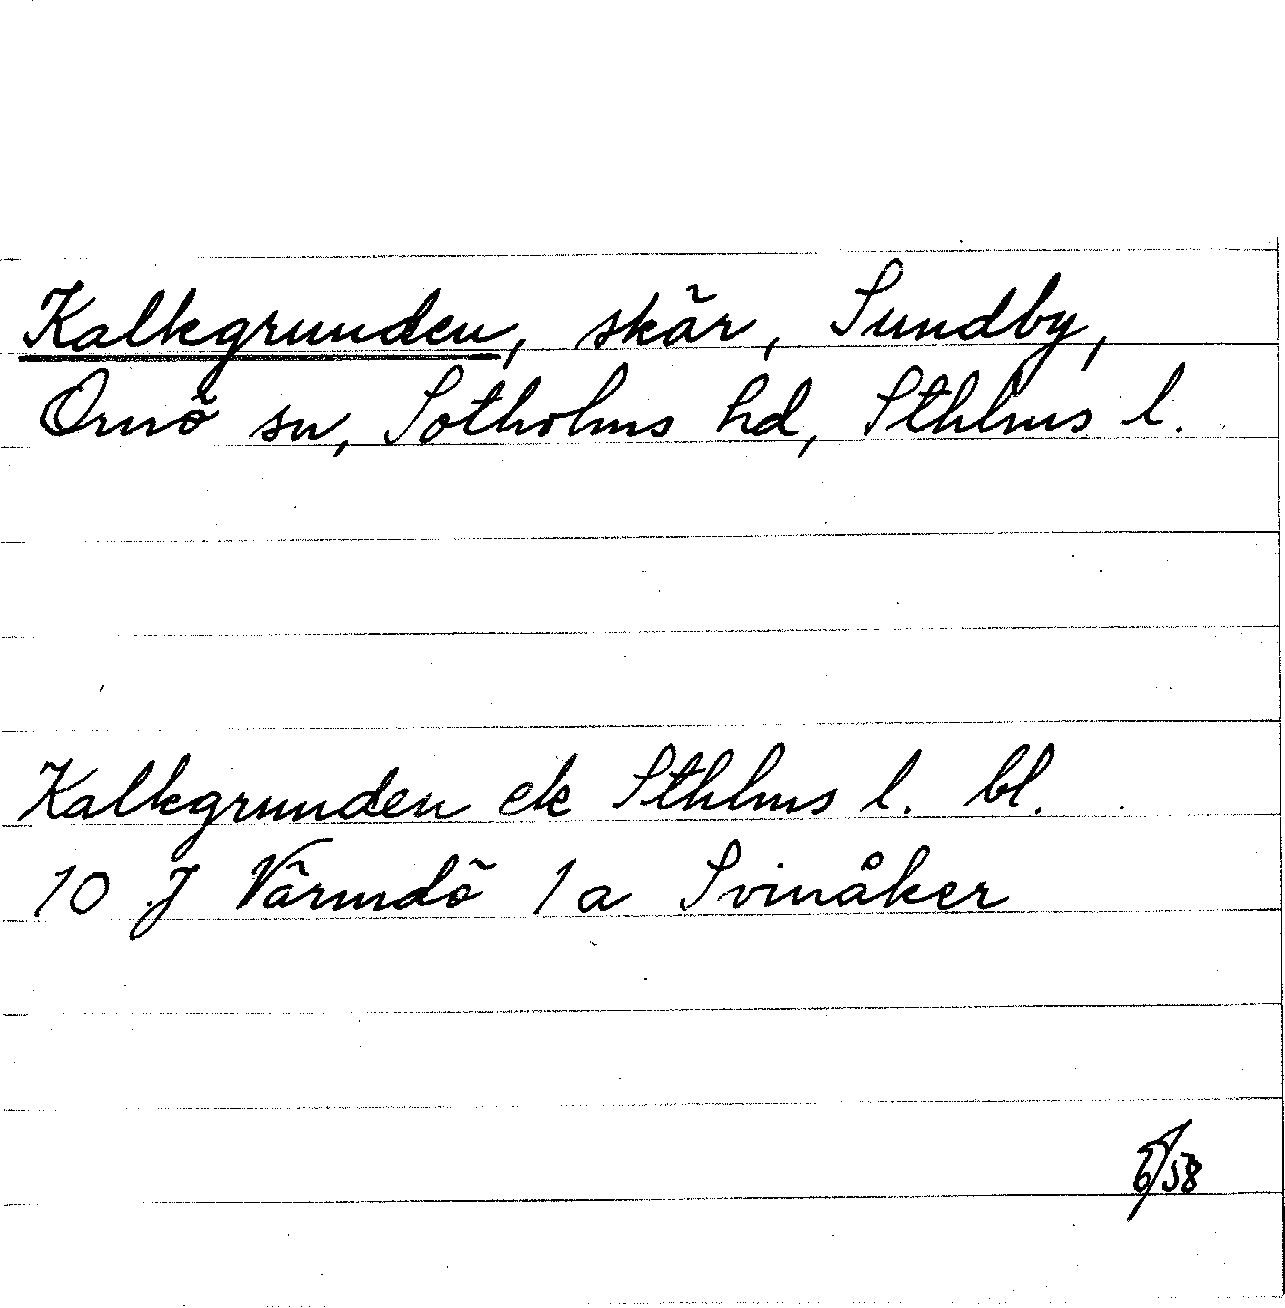 Kalkgrunden, skär, Sundby,
Ornö sn, Sotholms hd, Sthlms l.
Kalkgrunden ek Sthlms l. bl.
10 J Värmdö 1a Svinåker
/58